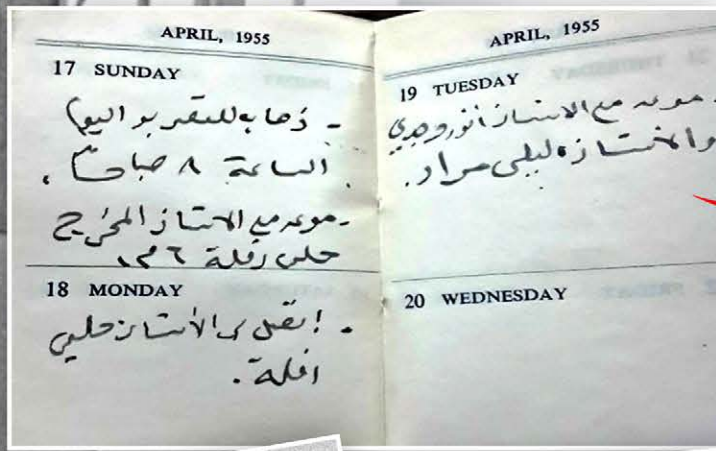 APRIL, 1955
17 SUNDAY
- ذهاب للتقديم اليوم
الساعة ٨ صباحاً.
- موعد مع الاستاذ المخرج
حلمي رفلة ٦ م.
18 MONDAY
- إتصل بي الأستاذ حلمي
رفلة.
APRIL, 1955
19 TUESDAY
- موعد مع الاستاذ أنور وجدي
والاستاذه ليلى مراد.
20 WEDNESDAY